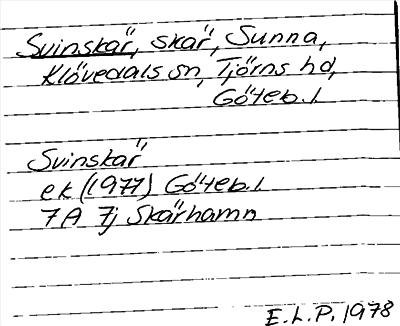 Svinskär, skär, Sunna,
Klövedals sn, Tjörns hd,
Göteb. l
Svinskär
ek (1977) Göteb. l
7A 7j Skärhamn
E.L.P. 1978